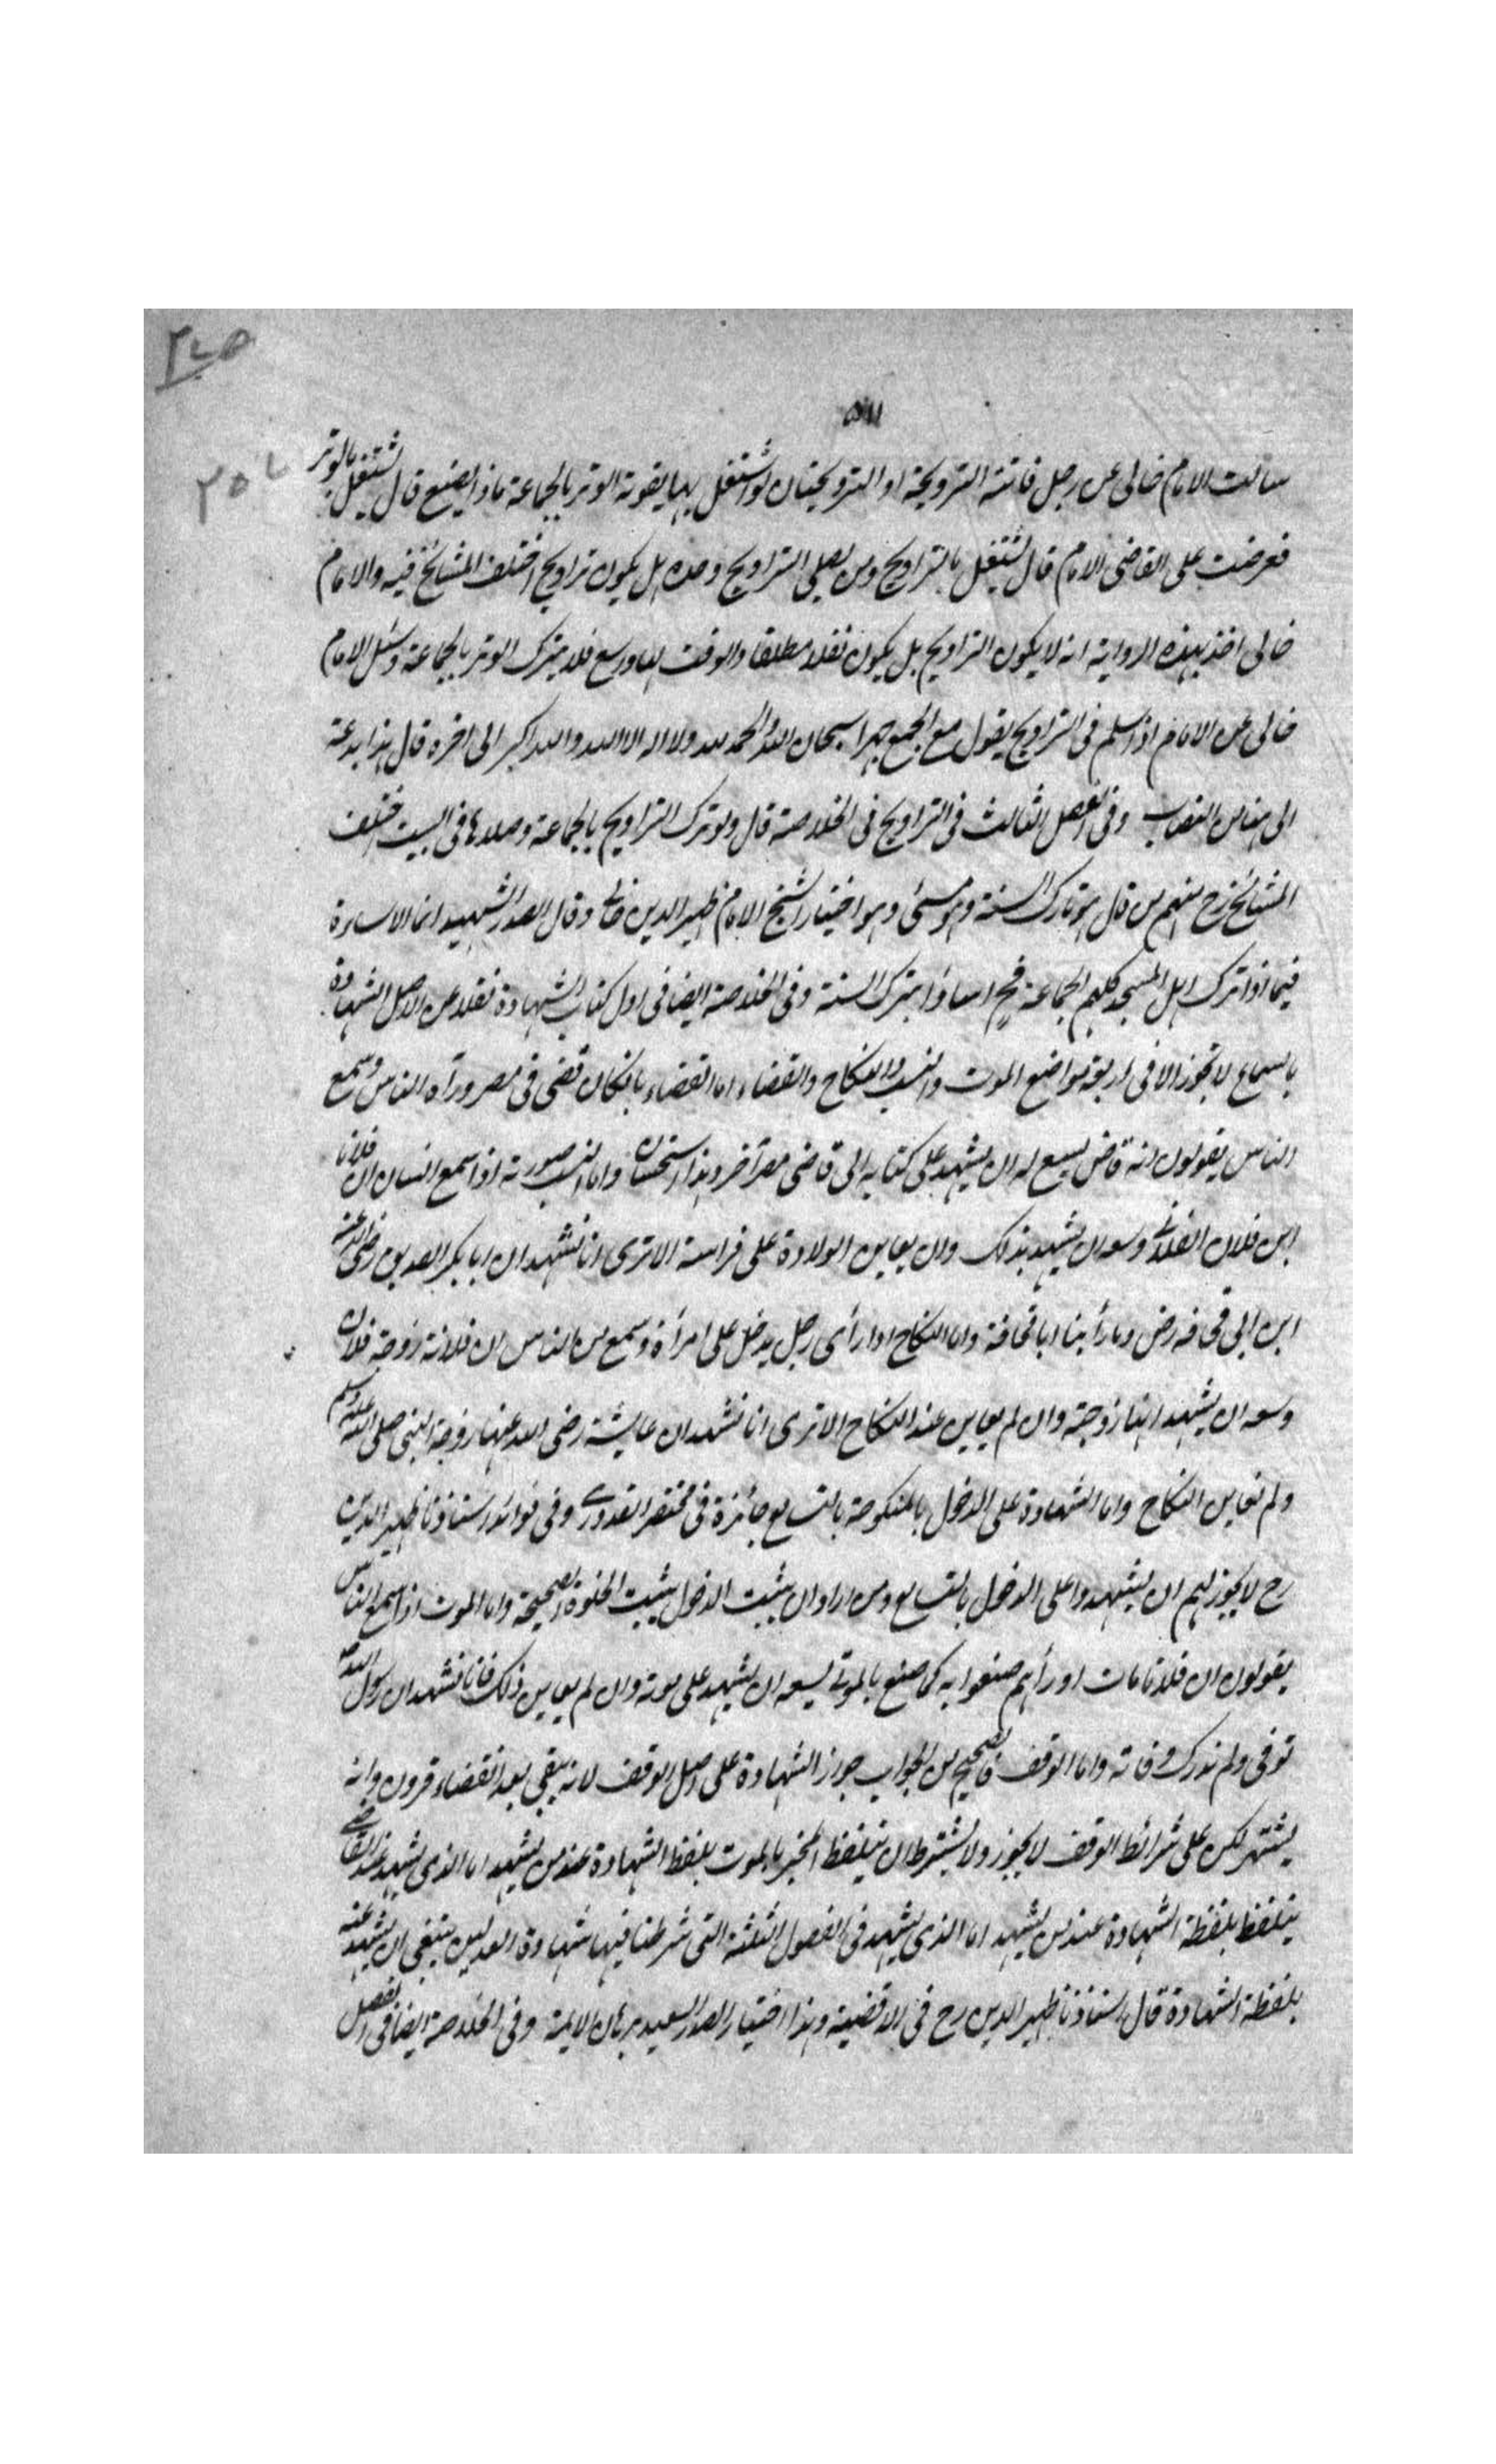 سالت الامام خالى عن رجل فاتته الترويحة او الترويحتان لو اشتغل بها يفوته الوتر بالجماعة ماذا يصنع قال يشتغل بالوتر
فعرضت على القاضى الامام قال يشتغل بالتراويح ومن يصلى التراويح وحده هل يكون تراويح اختلف المشائخ فيه والامام
خالى اخذ بهذه الرواية انه لا يكون التراويح بل يكون نفلا مطلقا والوقت لها وسع فلا يترك الوتر بالجماعة وسئل الامام
خالى عن الامام اذا سلم فى التراويح يقول مع الجمع جهرا سبحان الله والحمد لله ولا اله الا الله والله اكبر الى اخره قال هذا بدعة
الى هنا من النصاب وفى الفصل الثالث فى التراويح فى الخلاصة قال ولو ترك التراويح بالجماعة وصلاها فى البيت اختلف
المشائخ رح منهم من قال هو تارك السنة وهو مسئ وهو اختيار الشيخ الامام ظهير الدين خالى وقال الصدر الشهيد انما الاساءة
فيما اذا ترك اهل المسجد كلهم الجماعة فح اساؤا بترك السنة وفى الخلاصة ايضا فى اول كتاب الشهادة نقلا عن الاصل الشهادة
بالسماع لا تجوز الا فى اربعة مواضع الموت والنسب والنكاح والقضاء اما القضاء بان كان قضى فى مصر ورآه الناس وسمع
الناس يقولون انه قاض يسع له ان يشهد على كتابه الى قاضى مصر آخر وهذا استحسان واما النسب صورته اذا سمع انسان ان فلانا
ابن فلان الفلانى وسعه ان يشهد بذلك وان يعاين الولادة على فراسه الا ترى انا نشهد ان ابا بكر الصديق رضى الله عنه
ابن ابى قحافه رض وما رأينا ابا قحافة واما النكاح اذا رأى رجل يدخل على امرأة وسمع من الناس ان فلانة زوجة فلان
وسعه ان يشهد انها زوجته وان لم يعاين عند النكاح الا ترى انا نشهد ان عايشة رضى الله عنها زوجة النبى صلى الله عليه وسلم
ولم نعاين النكاح واما الشهادة على الدخول بالمنكوحة بالتسامع جائزة فى مختصر القدورى وفى فوائد استاذنا ظهير الدين
رح لا يجوز لهم ان يشهدوا على الدخول بالتسامع ومن اراد ان يثبت الدخول يثبت الخلوة الصحيحة واما الموت اذا سمع الناس
يقولون ان فلانا مات او رأهم صنعوا به كما صنع بالموتى يسعه ان يشهد على موته وان لم يعاين ذلك فانا نشهد ان رسول الله ص
توفى ولم ندرك وفاته واما الوقف فالصحيح من الجواب جواز الشهادة على اصل الوقف لانه يبقى بعد انقضاء قرون وانه
يشتهر لكن على شرائط الوقف لا يجوز ولا يشترط ان يتلفظ المخبر بالموت بلفظ الشهادة عند من يشهد اما الذى يشهد عند القاضى
يتلفظ بلفظة الشهادة عند من يشهد اما الذى يشهد فى الفصول الثلثة التى شرطنا فيها شهادة العدلين ينبغى ان يشهد عنه
بلفظة الشهادة قال استاذنا ظهير الدين رح فى الاقضية وهذا اختيار الصدر السعيد برهان الايمة وفى الخلاصة ايضا فى الفصل